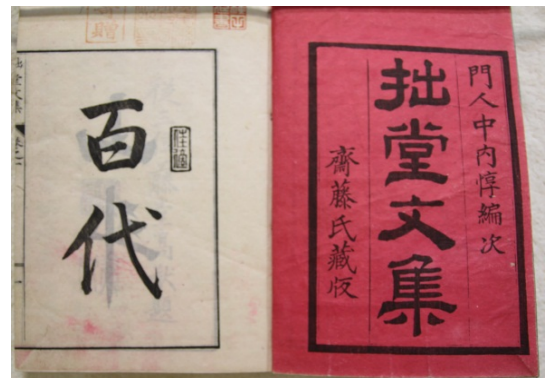 門人中内惇編次
拙堂文集
齋藤氏藏版
百代
拙堂文集